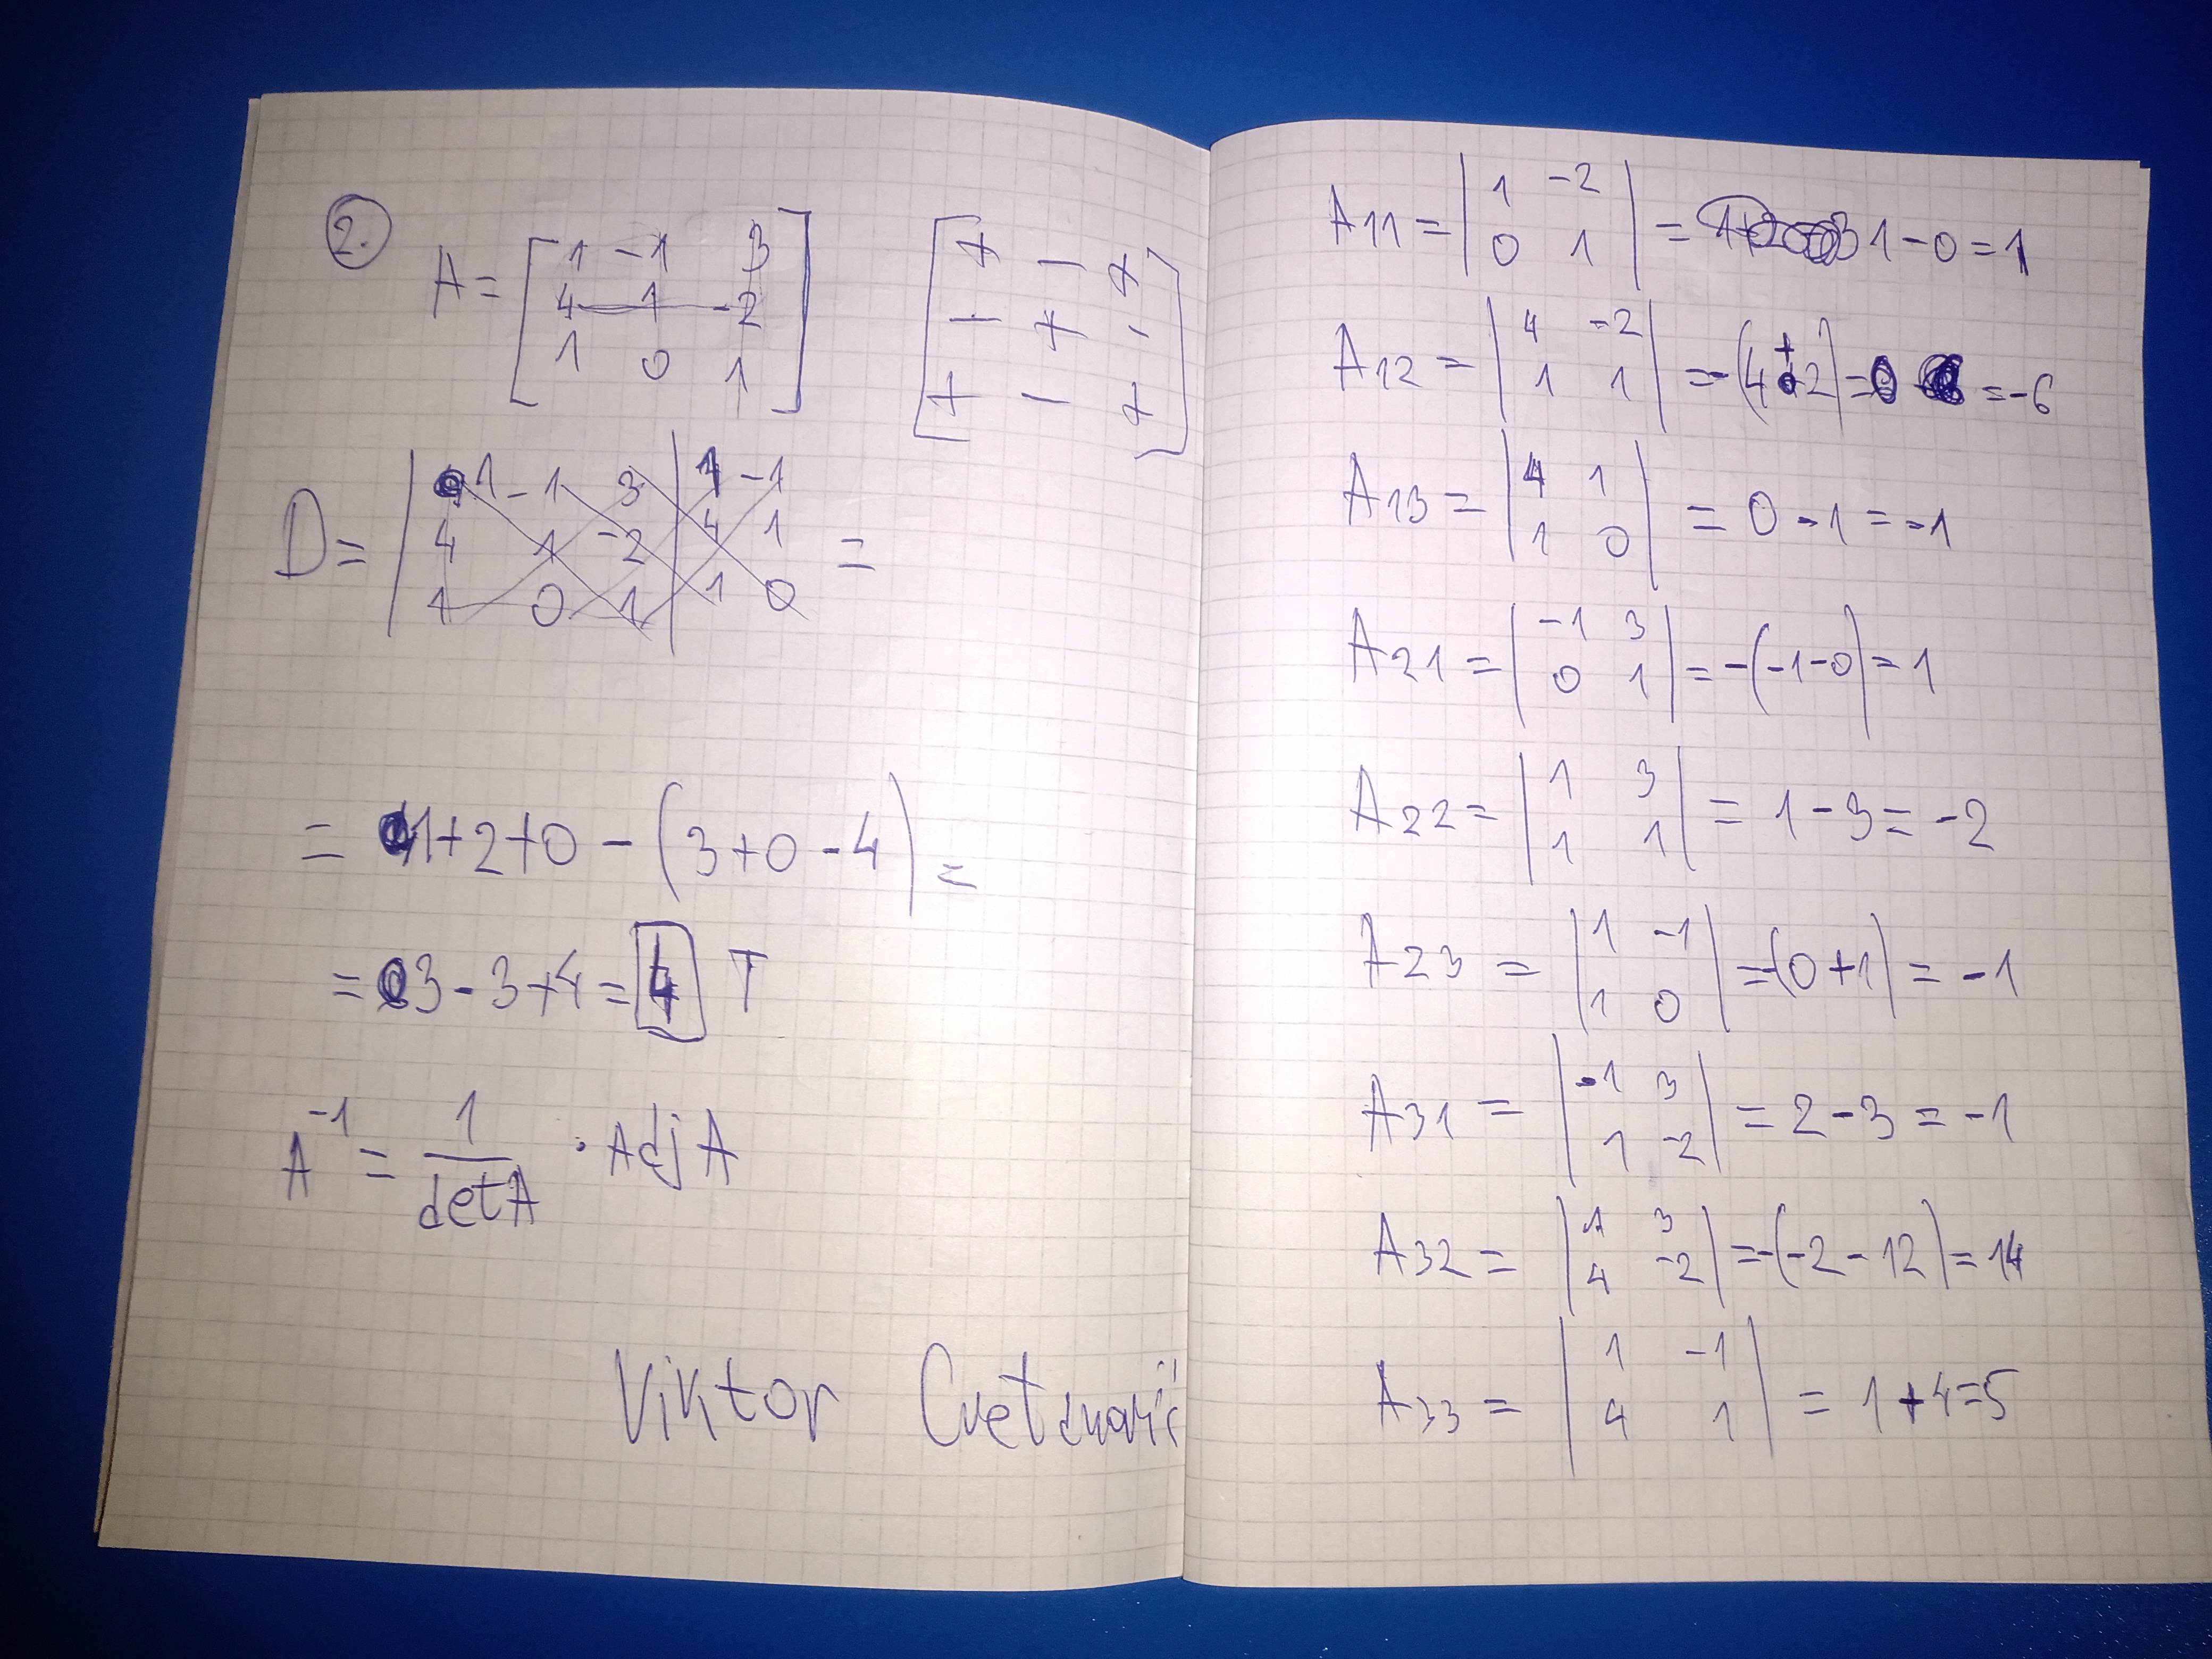 2.
A = [ 1 -1 3
4 1 -2
1 0 1 ]
[ + - +
- + -
+ - + ]
D = | 1 -1 3 | 1 -1
4 1 -2 | 4 1 =
1 0 1 | 1 0
= 1+2+0 - (3+0-4) =
= 3-3+4 = 4 T
A⁻¹ = 1/detA · AdjA
Viktor
A11 = | 1 -2
0 1 | = 1-0=1
A12 = | 4 -2
1 1 | = -(4+2) = = -6
A13 = | 4 1
1 0 | = 0-1 = -1
A21 = | -1 3
0 1 | = -(-1-0) = 1
A22 = | 1 3
1 1 | = 1-3 = -2
A23 = | 1 -1
1 0 | = -(0+1) = -1
A31 = | -1 3
1 -2 | = 2-3 = -1
A32 = | 1 3
4 -2 | = -(-2-12) = 14
A33 = | 1 -1
4 1 | = 1+4=5